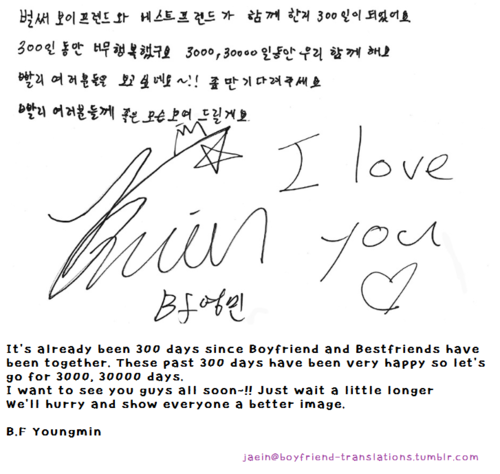 벌써 보이프렌드와 베스트프렌드가 함께 한지 300일이 되었어요
300일 동안 너무 행복했구요 3000, 30000일동안 우리 함께 해요
빨리 여러분들을 보고싶네요~!! 좀만 기다려주세요
빨리 여러분들께 좋은 모습 보여 드릴게요
I love
you
Bf 영민
It's already been 300 days since Boyfriend and Bestfriends have
been together. These past 300 days have been very happy so let's
go for 3000, 30000 days.
I want to see you guys all soon~!! Just wait a little longer
We'll hurry and show everyone a better image.
B.F Youngmin
jaein@boyfriend-translations.tumblr.com